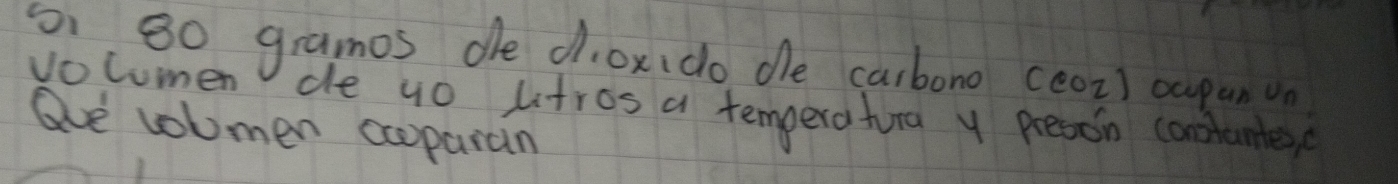 Si 80 gramos de dioxido de carbono (co2) ocupan un
volumen de 40 litros a temperatura y presión constantes, ¿
Qué volumen ocuparan